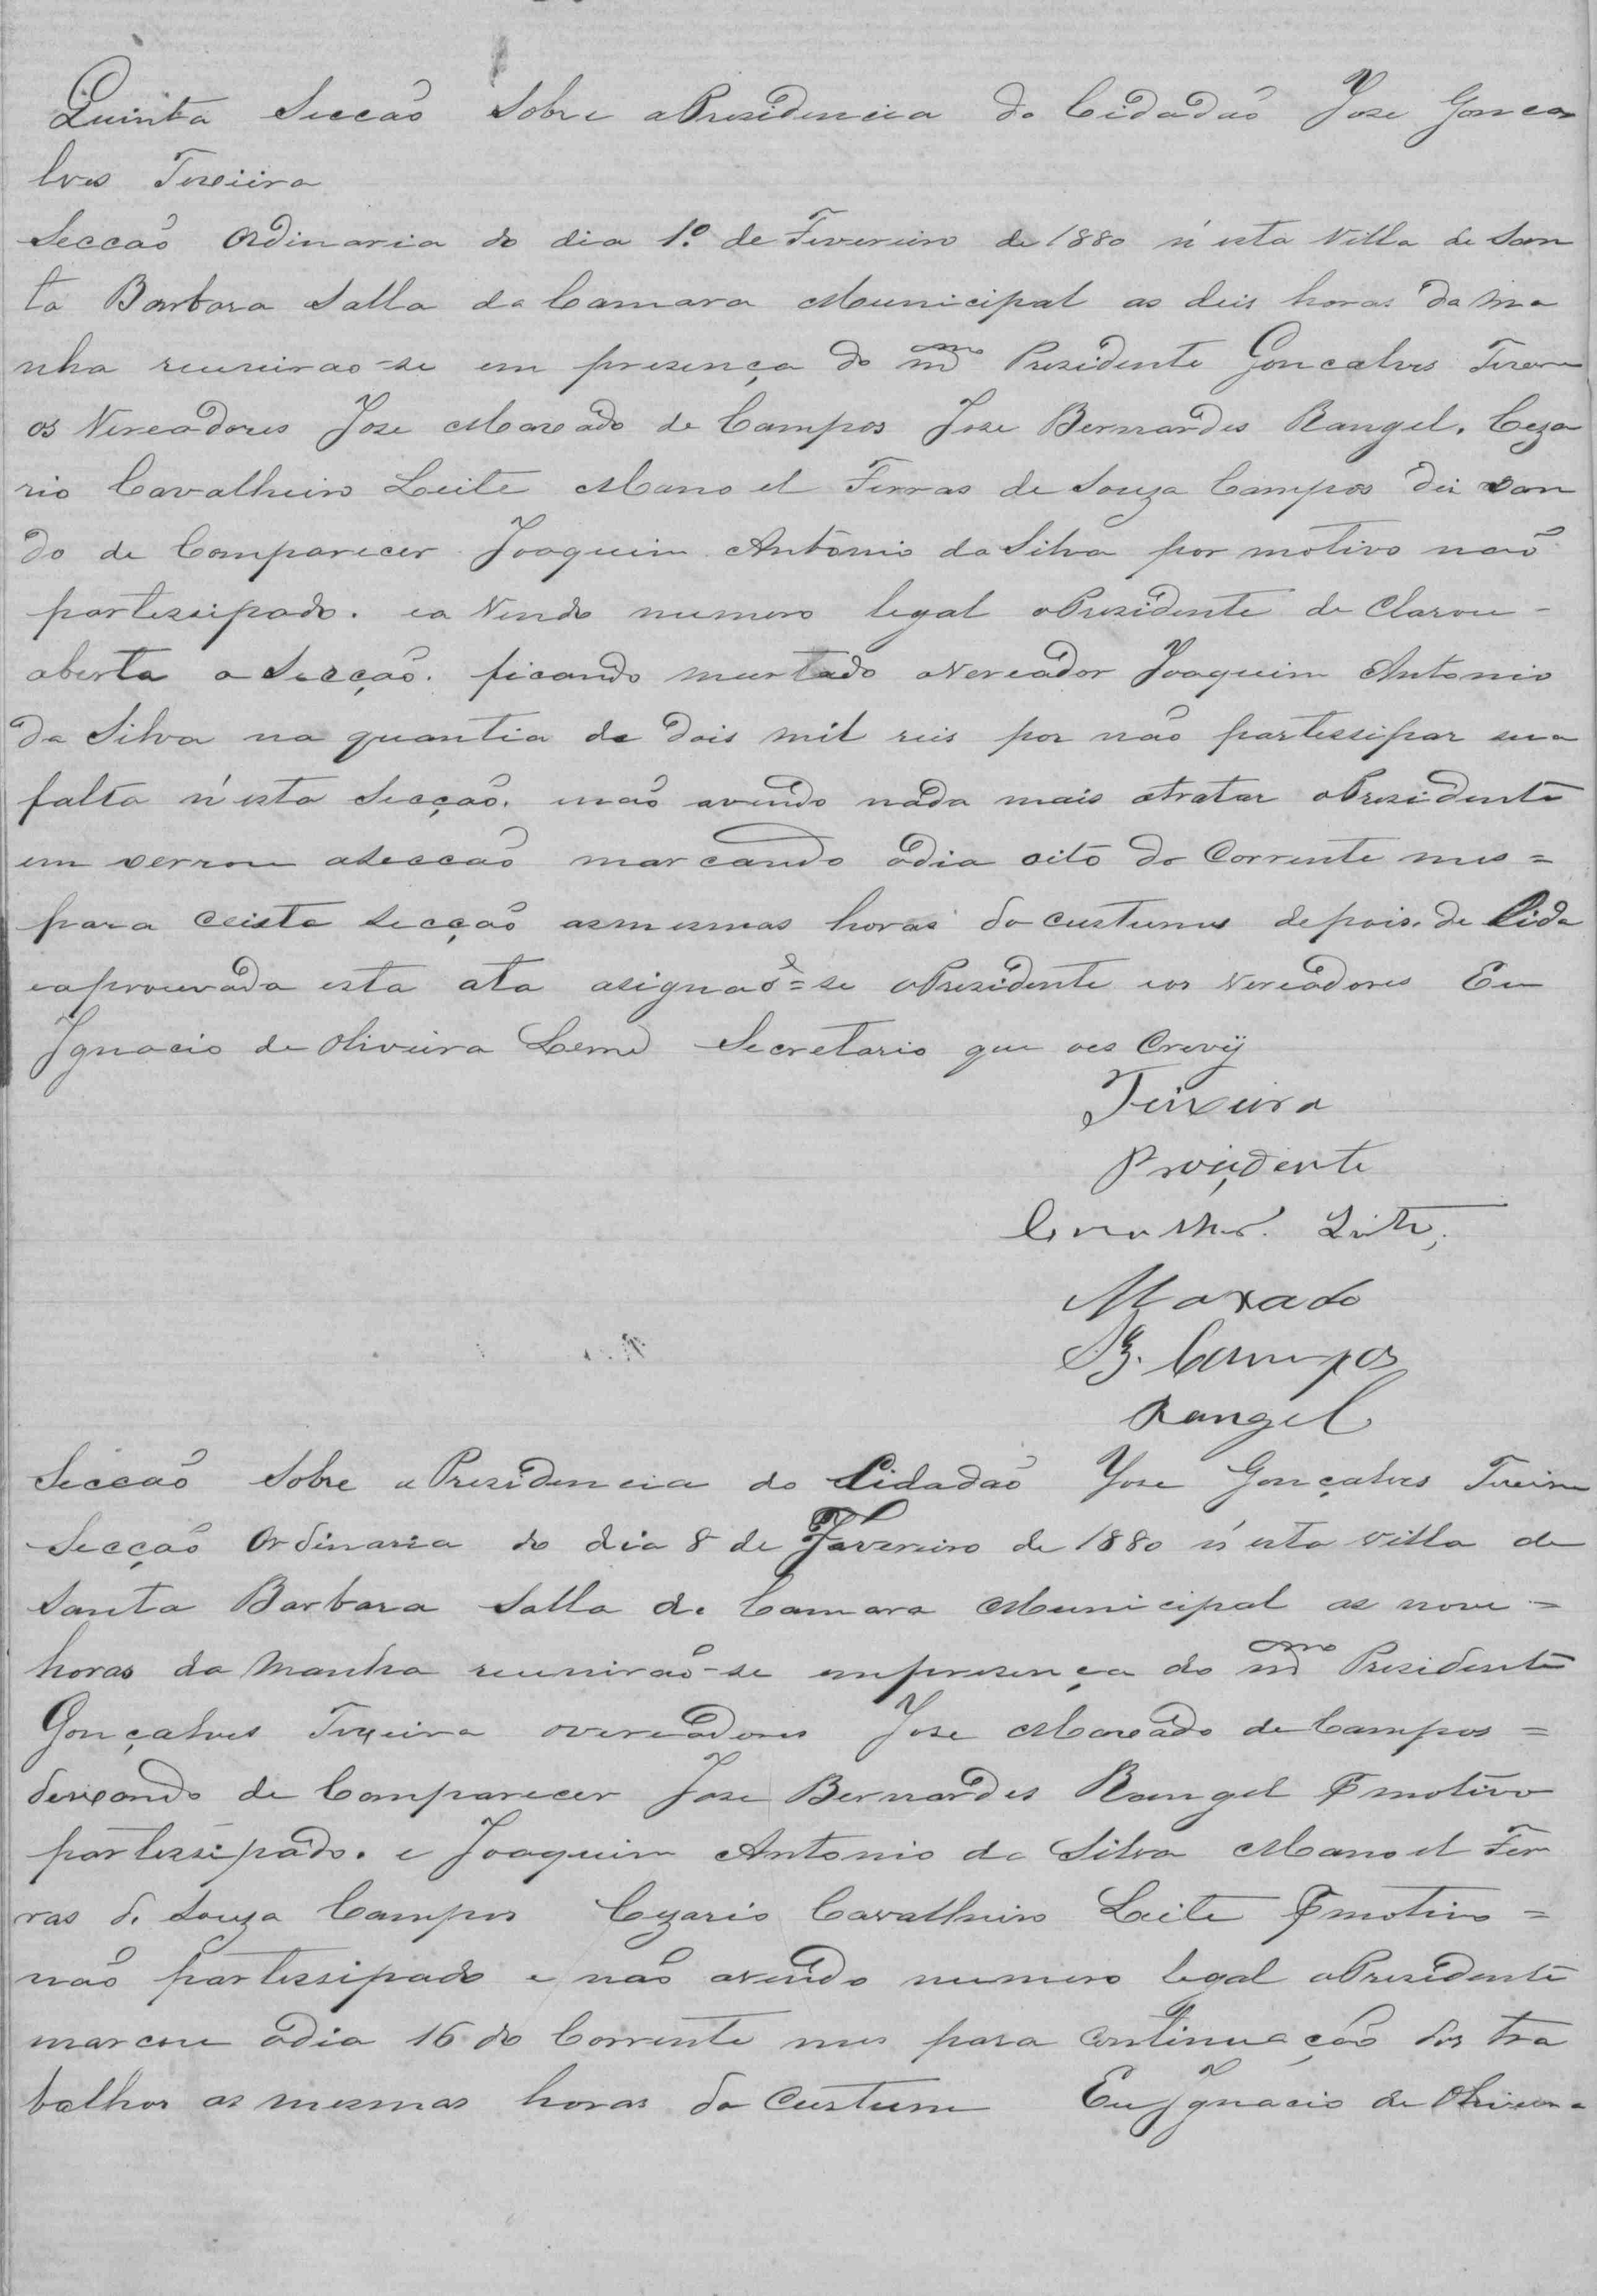 Quinta Seccaõ Sobre aPresidencia do Cidadaõ Jose Gonca
lves Texeira
Seccaõ Ordinaria do dia 1º de Fevereiro de 1880 n'esta Villa de San
ta Barbara Salla da Camara Municipal as deis horas da ma
nha reunirao-se em presença do mmº Presidente Goncalves Texera
os Vereadores Jose Maxado de Campos Jose Bernardes Rangel. Ceza
rio Cavalheiro Leite Manoel Ferras de Souza Campos dei xan
do de Comparecer Joaquim Antonio da Silva por motivo naõ
partessipado. ea Vendo numero legal oPresidente de Clarou -
aberta a Secção. ficando murtado oVereador Joaquim Antonio
da Silva na quantia de dois mil reis por não partessipar sua
falta n'esta Secção. enaõ avendo nada mais atratar oPresidente
em serrou aSeccaõ marcando odia oito do Corrente mes =
para Ceista secçaõ asmesmas horas do custume depois. de Lida
eaprouvada esta ata asignaõ=se oPresidente eos Vereadores Eu
Ignacio de Oliveira Leme Secretario que oes Crevÿ
Teixeira
Prezidente
Cavalhrº. Leite,
Maxado
Sz. Campos
Rangel
Seccaõ Sobre a Presidencia do Cidadaõ Jose Gonçalves Texeira
Secçaõ Ordinaria do dia 8 de Favereiro de 1880 n'esta Villa de
Santa Barbara Salla da Camara Municipal as nove =
horas da Manha reuniraõ-se empresença do mmº Presidente
Gonçalves Texeira overeadores Jose Maxado de Campos =
dexando de Comparecer Jose Bernardes Rangel P motivo
partessipado. e Joaquim Antonio da Silva Manoel Fer
ras de Souza Campos Cezario Cavalheiro Leite P motivo =
naõ partessipado e naõ avendo numero legal oPresidente
marcou odia 16 do Corrente mes para Continuação dos tra
balhos as mesmas horas do Custume Eu Ignacio de Oliveira